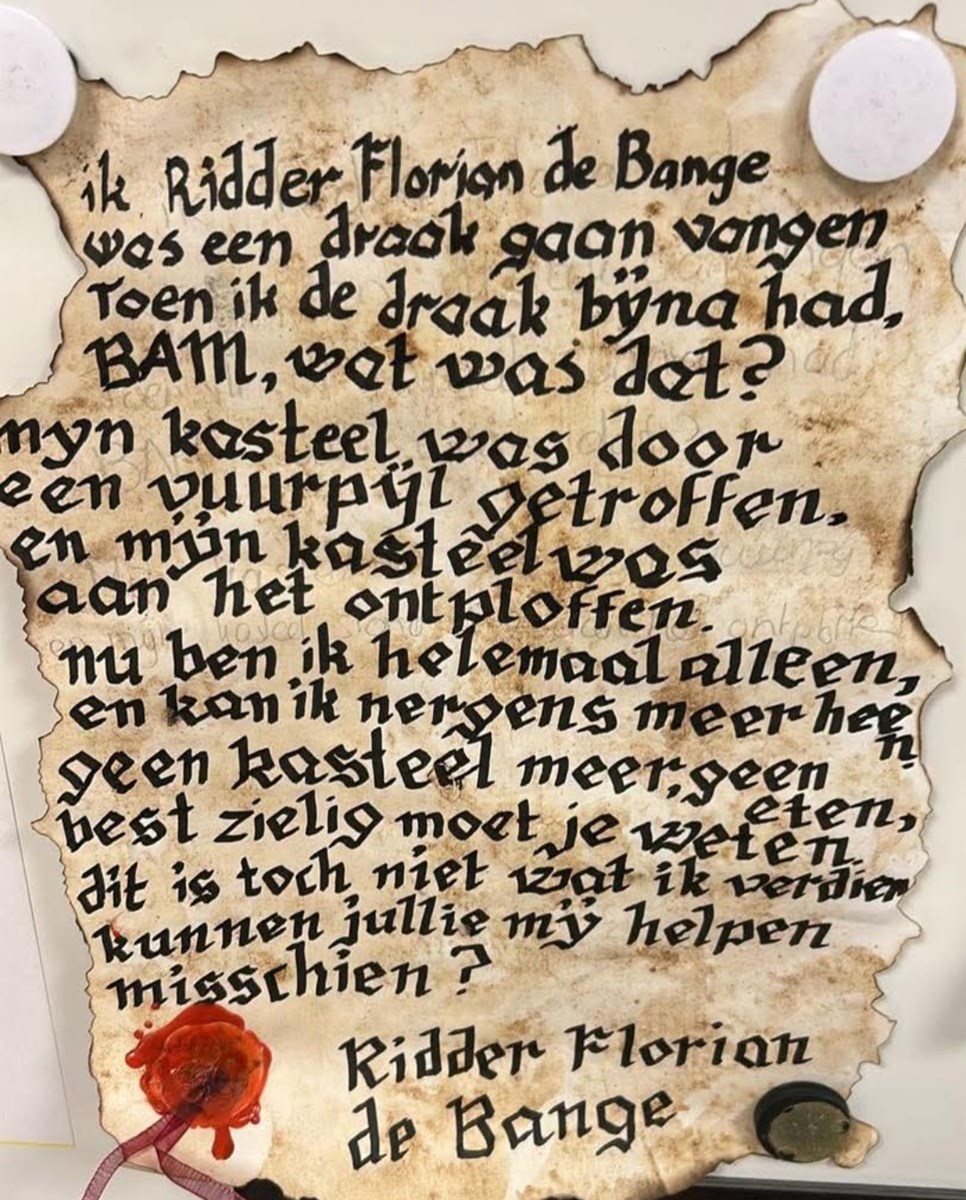 ik Ridder Florian de Bange
was een draak gaan vangen
Toen ik de draak bijna had,
BAM, wat was dat?
myn kasteel was door
een vuurpijl getroffen.
en mijn kasteel was
aan het ontploffen.
nu ben ik helemaal alleen,
en kan ik nergens meer heen
geen kasteel meer, geen eten,
best zielig moet je weten.
dit is toch niet wat ik verdien
kunnen jullie mÿ helpen
misschien?
Ridder Florian
de Bange